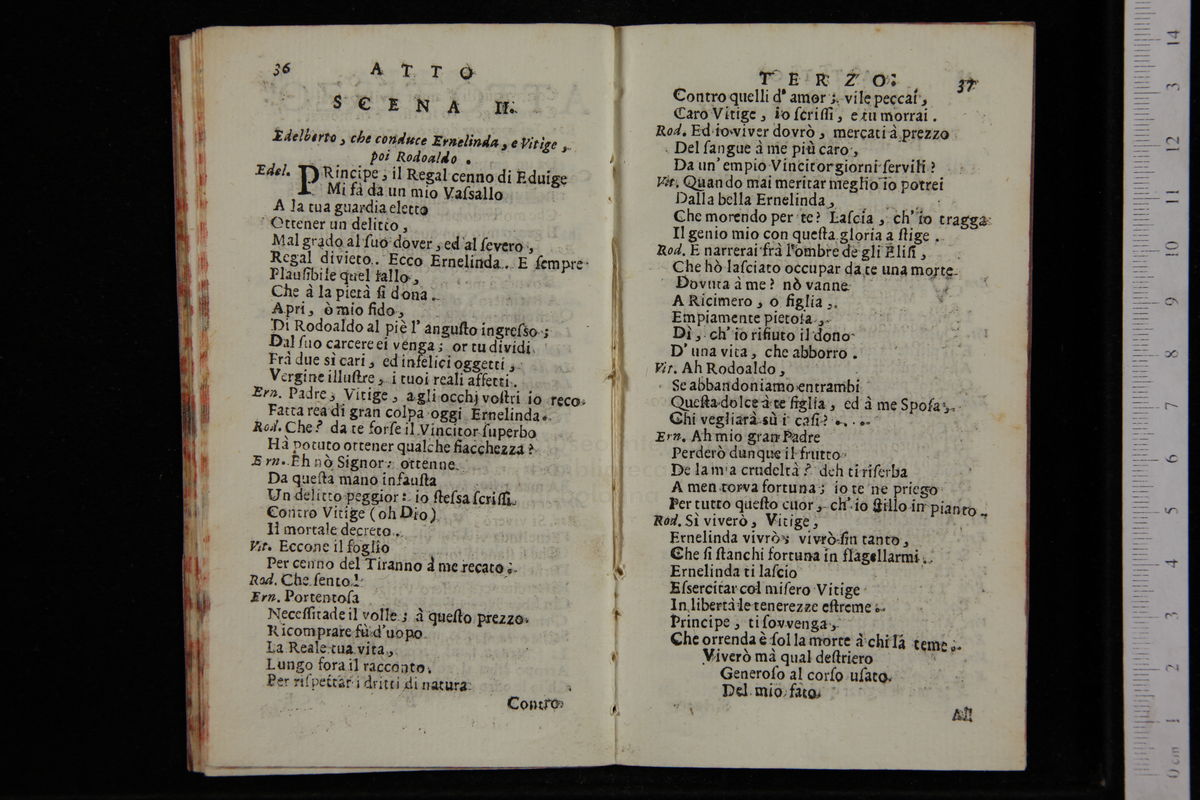 36 ATTO
SCENA II.
Edelberto, che conduce Ernelinda, e Vitige,
poi Rodoaldo.
Edel. PRincipe, il Regal cenno di Eduige
Mi fà da un mio Vaſsallo
A la tua guardia eletto
Ottener un delitto,
Mal grado al ſuo dover, ed al ſevero,
Regal divieto. Ecco Ernelinda. E ſempre
Plauſibile quel fallo,
Che à la pietà ſi dona.
Apri, ò mio fido,
Di Rodoaldo al piè l' anguſto ingreſso;
Dal ſuo carcere ei venga; or tu dividi
Frà due sì cari, ed infelici oggetti,
Vergine illuſtre, i tuoi reali affetti.
Ern. Padre, Vitige, agli occhj voſtri io reco
Fatta rea di gran colpa oggi Ernelinda.
Rod. Che? da te forſe il Vincitor ſuperbo
Hà potuto ottener qualche fiacchezza?
Ern. Eh nò Signor: ottenne
Da queſta mano infauſta
Un delitto peggior: io ſteſsa ſcriſſi
Contro Vitige (oh Dio)
Il mortale decreto.
Vit. Eccone il foglio
Per cenno del Tiranno à me recato:
Rod. Che ſento!
Ern. Portentoſa
Neceſſitade il volle; à queſto prezzo
Ricomprare fù d'uopo
La Reale tua vita,
Lungo fora il racconto.
Per riſpettar i dritti di natura
Contro
TERZO. 37
Contro quelli d' amor; vile peccai,
Caro Vitige, io ſcriſſi, e tu morrai.
Rod. Ed io viver dovrò, mercati à prezzo
Del ſangue à me più caro,
Da un' empio Vincitor giorni ſervili?
Vit. Quando mai meritar meglio io potrei
Dalla bella Ernelinda,
Che morendo per te? Laſcia, ch' io tragga
Il genio mio con queſta gloria a ſtige.
Rod. E narrerai frà l'ombre de gli Eliſi,
Che hò laſciato occupar da te una morte
Dovuta à me? nò vanne
A Ricimero, o figlia,
Empiamente pietoſa,
Dì, ch' io rifiuto il dono
D' una vita, che abborro.
Vit. Ah Rodoaldo,
Se abbandoniamo entrambi
Queſta dolce à te figlia, ed à me Spoſa,
Chi vegliarà sù i caſi? ...
Ern. Ah mio gran Padre
Perderò dunque il frutto
De la mia crudeltà? deh ti riſerba
A men torva fortuna; io te ne priego
Per tutto queſto cuor, ch' io ſtillo in pianto.
Rod. Sì viverò, Vitige,
Ernelinda vivrò; vivrò ſin tanto,
Che ſi ſtanchi fortuna in flagellarmi.
Ernelinda ti laſcio
Eſsercitar col miſero Vitige
In libertà le tenerezze eſtreme.
Principe, ti ſovvenga,
Che orrenda è ſol la morte à chi la teme.
Viverò mà qual deſtriero
Generoſo al corſo uſato
Del mio fato
All